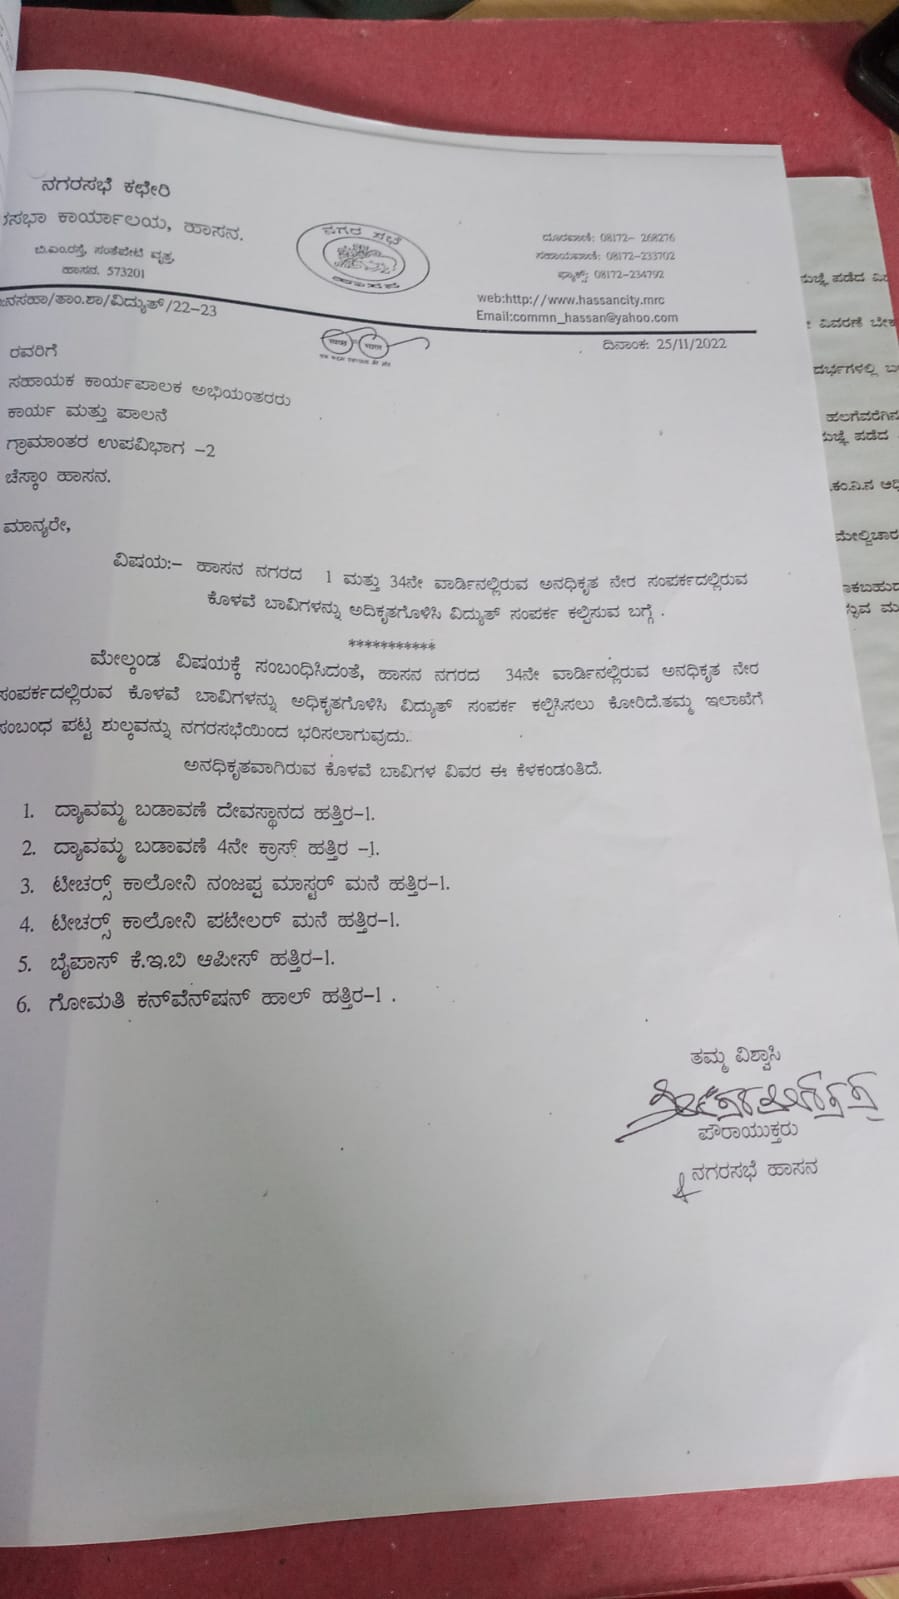 ನಗರಸಭೆ ಕಛೇರಿ
ರಸಭಾ ಕಾರ್ಯಾಲಯ, ಹಾಸನ.
ಬಿ.ಎಂ.ರಸ್ತೆ, ಸಂತೆಪೇಟೆ ವೃತ್ತ,
ಹಾಸನ. 573201
ನಗರ ಸಭೆ
ಹಾಸನ
ದೂರವಾಣಿ: 08172- 268276
ಸಹಾಯವಾಣಿ: 08172-233702
ಫ್ಯಾಕ್ಸ್: 08172-234792
web:http://www.hassancity.mrc
Email:commn_hassan@yahoo.com
:ನಸಹಾ/ತಾಂ.ಶಾ/ವಿದ್ಯುತ್/22-23
ದಿನಾಂಕ: 25/11/2022
ರವರಿಗೆ
ಸಹಾಯಕ ಕಾರ್ಯಪಾಲಕ ಅಭಿಯಂತರರು
ಕಾರ್ಯ ಮತ್ತು ಪಾಲನೆ
ಗ್ರಾಮಾಂತರ ಉಪವಿಭಾಗ -2
ಚೆಸ್ಕಾಂ ಹಾಸನ.
ಮಾನ್ಯರೇ,
ವಿಷಯ:- ಹಾಸನ ನಗರದ 1 ಮತ್ತು 34ನೇ ವಾರ್ಡಿನಲ್ಲಿರುವ ಅನಧಿಕೃತ ನೇರ ಸಂಪರ್ಕದಲ್ಲಿರುವ
ಕೊಳವೆ ಬಾವಿಗಳನ್ನು ಅದಿಕೃತಗೊಳಿಸಿ ವಿದ್ಯುತ್ ಸಂಪರ್ಕ ಕಲ್ಪಿಸುವ ಬಗ್ಗೆ .
***********
ಮೇಲ್ಕಂಡ ವಿಷಯಕ್ಕೆ ಸಂಬಂಧಿಸಿದಂತೆ, ಹಾಸನ ನಗರದ 34ನೇ ವಾರ್ಡಿನಲ್ಲಿರುವ ಅನಧಿಕೃತ ನೇರ
ಸಂಪರ್ಕದಲ್ಲಿರುವ ಕೊಳವೆ ಬಾವಿಗಳನ್ನು ಅಧಿಕೃತಗೊಳಿಸಿ ವಿದ್ಯುತ್ ಸಂಪರ್ಕ ಕಲ್ಪಿಸಿಸಲು ಕೋರಿದೆ.ತಮ್ಮ ಇಲಾಖೆಗೆ
ಸಂಬಂಧ ಪಟ್ಟ ಶುಲ್ಕವನ್ನು ನಗರಸಭೆಯಿಂದ ಭರಿಸಲಾಗುವುದು.
ಅನಧಿಕೃತವಾಗಿರುವ ಕೊಳವೆ ಬಾವಿಗಳ ವಿವರ ಈ ಕೆಳಕಂಡಂತಿದೆ.
1. ದ್ಯಾವಮ್ಮ ಬಡಾವಣೆ ದೇವಸ್ಥಾನದ ಹತ್ತಿರ-1.
2. ದ್ಯಾವಮ್ಮ ಬಡಾವಣೆ 4ನೇ ಕ್ರಾಸ್ ಹತ್ತಿರ -1.
3. ಟೀಚರ್ಸ್ ಕಾಲೋನಿ ನಂಜಪ್ಪ ಮಾಸ್ಟರ್ ಮನೆ ಹತ್ತಿರ-1.
4. ಟೀಚರ್ಸ್ ಕಾಲೋನಿ ಪಟೇಲರ್ ಮನೆ ಹತ್ತಿರ-1.
5. ಬೈಪಾಸ್ ಕೆ.ಇ.ಬಿ ಆಪೀಸ್ ಹತ್ತಿರ-1.
6. ಗೋಮತಿ ಕನ್‌ವೆನ್‌ಷನ್ ಹಾಲ್ ಹತ್ತಿರ-1 .
ತಮ್ಮ ವಿಶ್ವಾಸಿ
ಪೌರಾಯುಕ್ತರು
ನಗರಸಭೆ ಹಾಸನ
ಪಡೆದ
ವಿವರಣೆ ಬೇಕ
ದರ್ಭಗಳಲ್ಲಿ
ಹಲಗೆವರೆಗಿನ
ಪಡೆದ
.ಕಂ.ನಿ.ನ
ಮೇಲ್ವಿಚಾರ